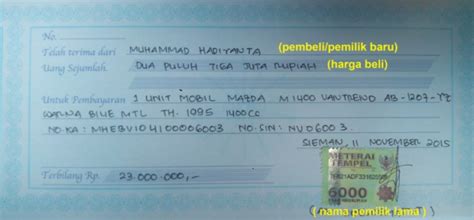 No.
Telah terima dari MUHAMMAD HADIYANTA (pembeli/pemilik baru)
Uang Sejumlah DUA PULUH TIGA JUTA RUPIAH (harga beli)
Untuk Pembayaran 1 UNIT MOBIL MAZDA M1400 VANTREND AB-1207-YZ
WARNA BLUE MTL TH. 1995 1400CC
NO.KA: MHEBV104100006003 NO.SIN: NVD6003.
SLEMAN, 11 NOVEMBER 2015
METERAI
TEMPEL
6000
Terbilang Rp. 23.000.000,-
( nama pemilik lama )